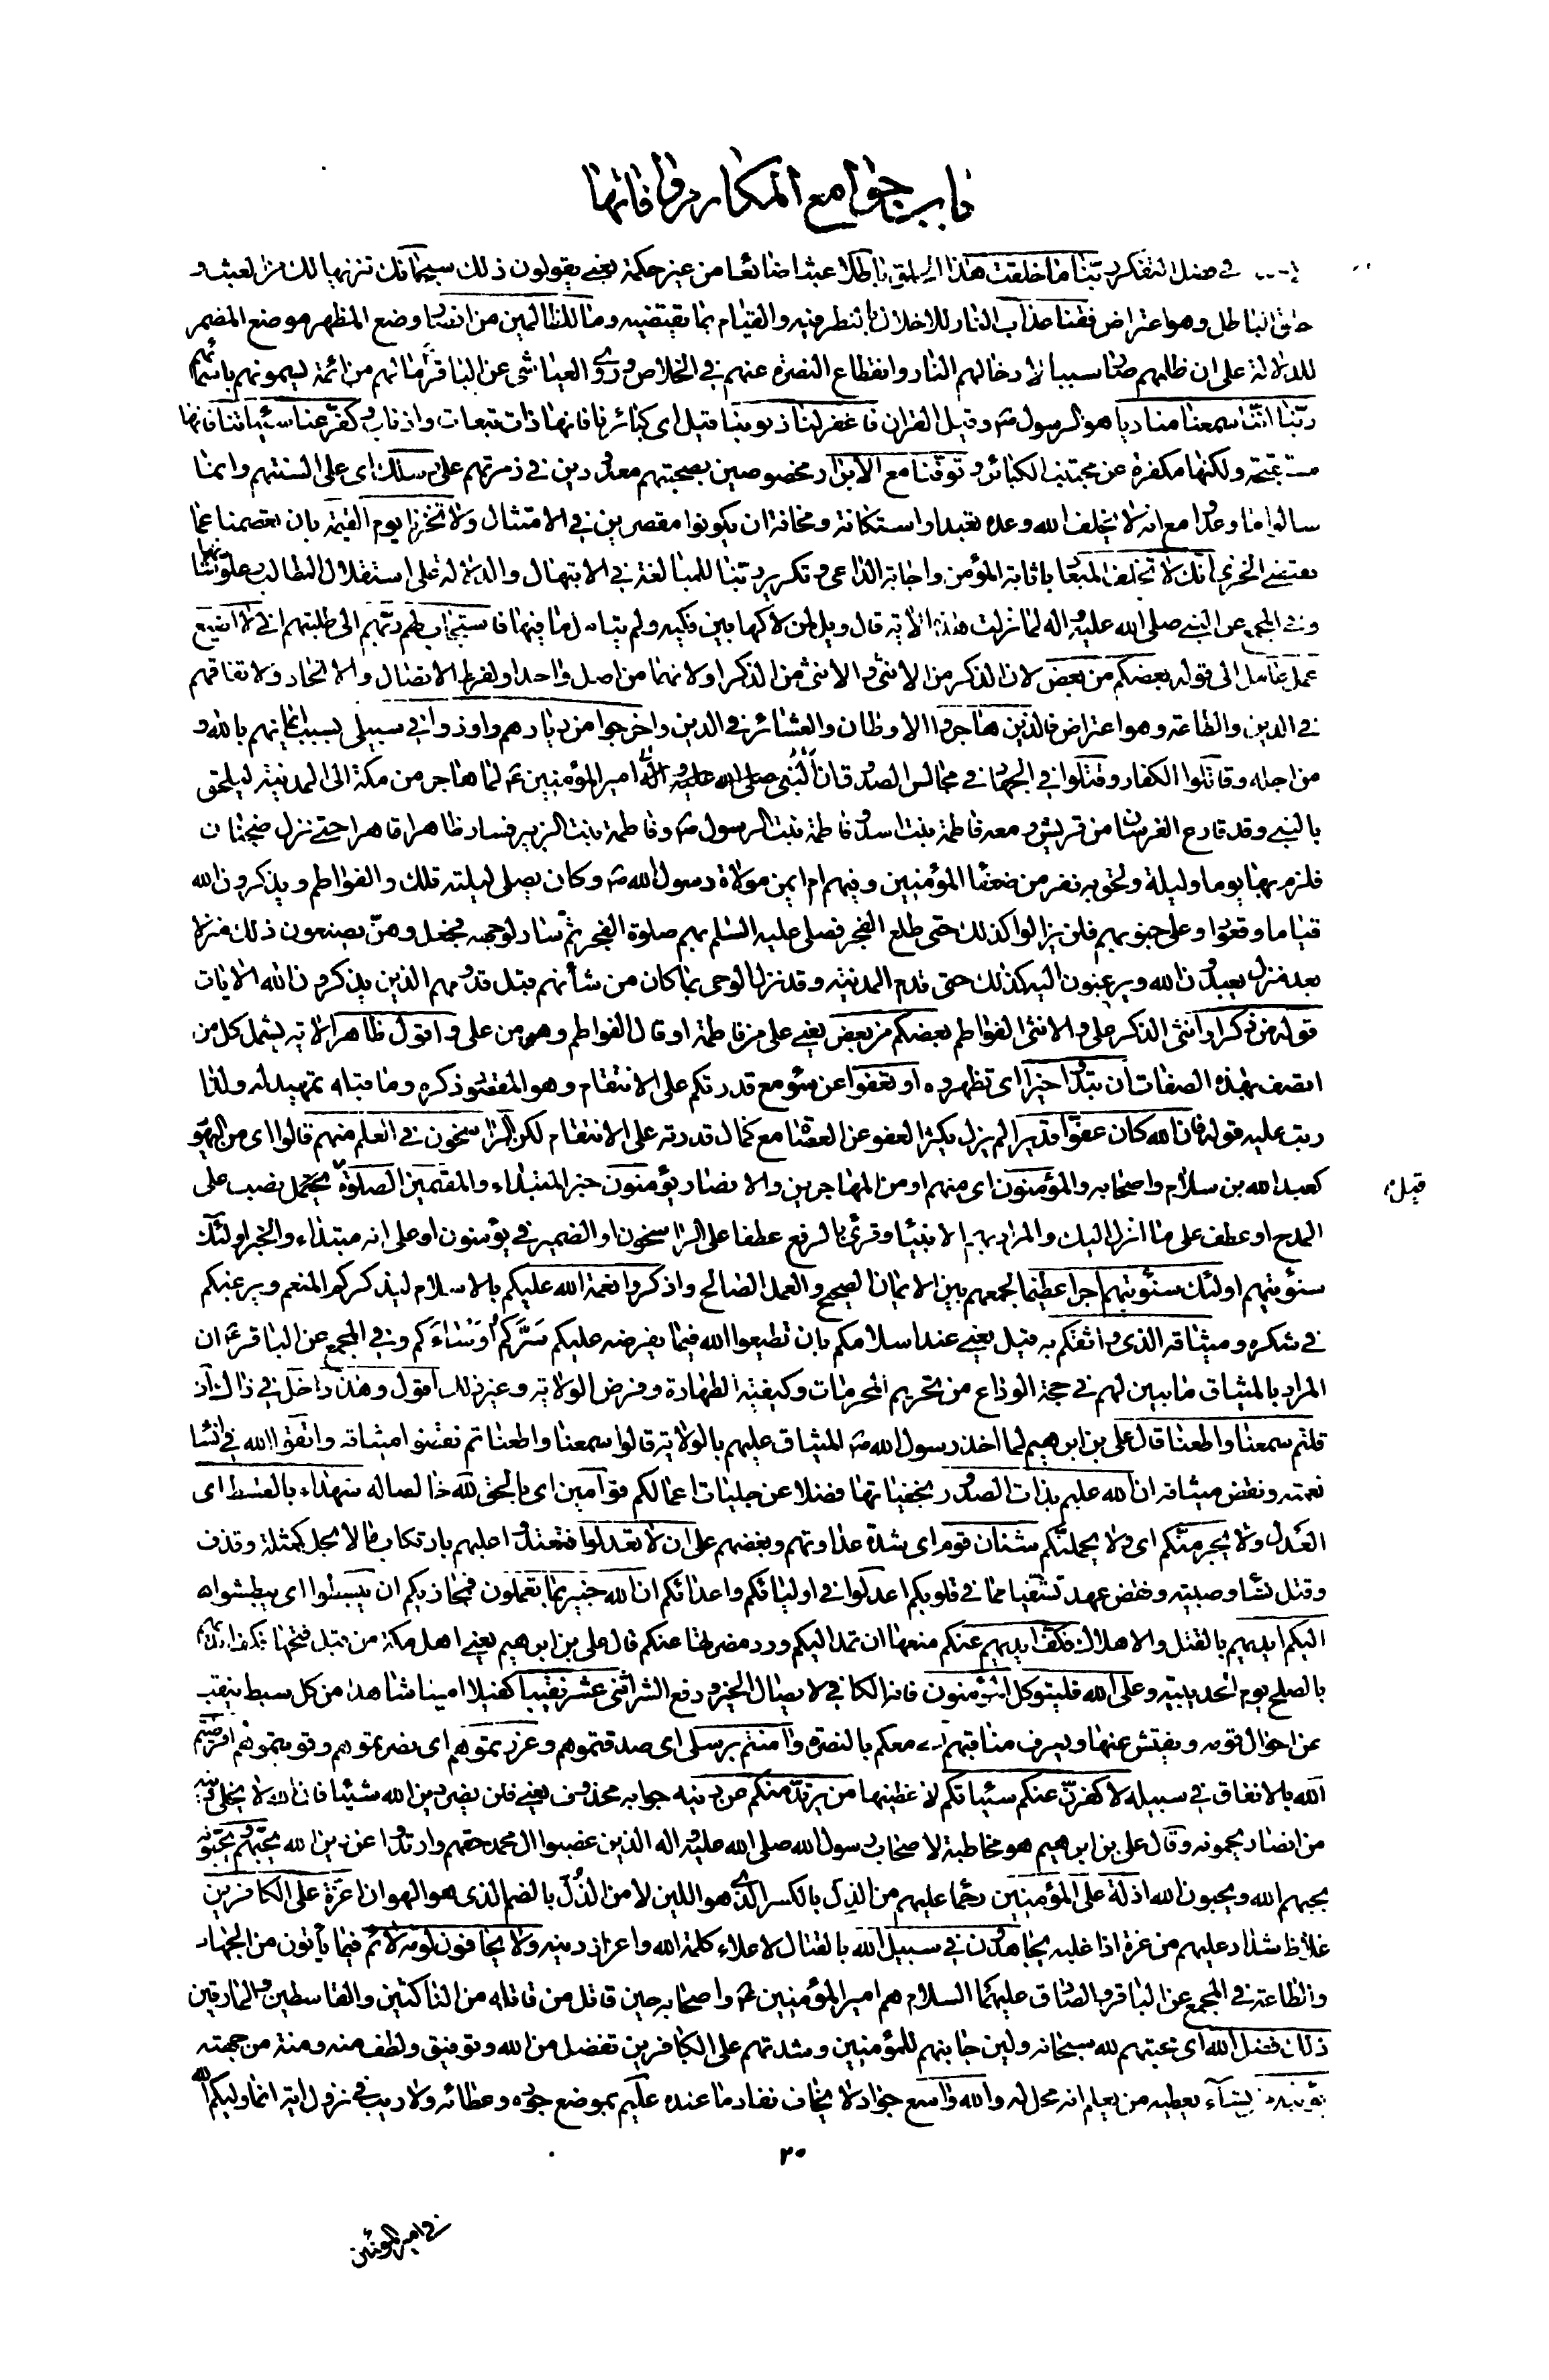 باب جوامع المكارم وافاتها
في فضل التفكر ربّنا ما خلقت هذا الخلق باطلا عبثا ضائعا من غير حكمة يعني يقولون ذلك سبحانك تنزيها لك من العبث و
خلق الباطل وهو اعتراض فقنا عذاب النار للاخلال بالنظر فيه والقيام بما يقتضيه وما للظالمين من انصار وضع المظهر موضع المضمر
للدلالة على ان ظلمهم صار سببا لادخالهم النار وانقطاع النصرة عنهم في الخلاص وروى العياشي عن الباقر ع مالهم من ائمة يسمونهم باسمائهم
ربّنا انّنا سمعنا مناديا هو الرسول ص وقيل القران فاغفر لنا ذنوبنا قيل اى كبائرنا فانها ذات تبعات واذناب وكفّر عنا سيّئاتنا فانها
مستقبحة ولكنها مكفرة عن مجتنب الكبائر وتوفّنا مع الابرار مخصوصين بصحبتهم معدودين في زمرتهم على رسلك اى على السنتهم وانما
سالوا ما وعدوا مع انه لا يخلف الله وعده تعبدا واستكانة ومخافة ان يكونوا مقصرين في الامتثال ولا تخزنا يوم القيمة بان تعصمنا عما
يقتضي الخزي انّك لا تخلف الميعاد باثابة المؤمن واجابة الداعي وتكرير ربّنا للمبالغة في الابتهال والدلالة على استقلال المطالب وعلو شانها
وفي المجمع عن النبي صلى الله عليه واله لما نزلت هذه الاية قال ويل لمن لاكها بين فكيه ولم يتامل ما فيها فاستجاب لهم ربّهم الى طلبتهم اني لا اضيع
عمل عامل الى قوله بعضكم من بعض لان الذكر من الانثى والانثى من الذكر او لانهما من اصل واحد او لفرط الاتصال والاتحاد ولاتفاقهم
في الدين والطاعة وهو اعتراض فالّذين هاجروا الاوطان والعشائر في الدين واخرجوا من ديارهم واوذوا في سبيلي بسبب ايمانهم بالله و
من اجله وقاتلوا الكفار وقتلوا في الجهاد في مجالس الصدوق ان النبي صلى الله عليه واله امير المؤمنين ع لما هاجر من مكة الى المدينة ليلحق
بالنبي وقد قارع الفرسان من قريش ومعه فاطمة بنت اسد وفاطمة بنت الرسول ص وفاطمة بنت الزبير فسار ظاهرا قاهرا حتى نزل ضجنان
فلزم بها يوما وليلة ولحق به نفر من ضعفاء المؤمنين وفيهم ام ايمن مولاة رسول الله ص وكان يصلى ليلته تلك والفواطم ويذكرون الله
قياما وقعودا وعلى جنوبهم فلن يزالوا كذلك حتى طلع الفجر فصلى عليه السلم بهم صلوة الفجر ثم سار لوجهه فجعل وهنّ يصنعون ذلك منزلا
بعد منزل يعبدون الله ويرغبون اليه كذلك حتى قدم المدينة وقد نزل الوحى بما كان من شأنهم قبل قدومهم الذين يذكرون الله الايات
قوله من ذكر او انثى الذكر على والانثى الفواطم بعضكم من بعض يعني على من فاطمة او قال الفواطم وهو من على واقول ظاهر الاية يشمل كل من
اتصف بهذه الصفات ان تبدوا خيرا اى تظهروه او تعفوا عن سوء مع قدرتكم على الانتقام وهو المقصود ذكره وما قبله تمهيد له ولذا
رتب عليه قوله فان الله كان عفوّا قديرا لم يزل يكثر العفو عن العصاة مع كمال قدرته على الانتقام لكن الراسخون في العلم منهم قالوا اى من اليهود
كعبد الله بن سلام واصحابه والمؤمنون اى منهم او من المهاجرين والانصار يؤمنون خبر المبتداء والمقيمين الصلوة يحتمل نصب على
قيل م
المدح او عطف على ما انزل اليك والمراد بهم الانبياء وقرئ بالرفع عطفا على الراسخون او الضمير في يؤمنون او على انه مبتداء والخبر اولئك
سنؤتيهم اولئك سنؤتيهم اجرا عظيما لجمعهم بين الايمان الصحيح والعمل الصالح واذكروا نعمة الله عليكم بالاسلام ليذكركم المنعم ويرغبكم
في شكره وميثاقه الذي واثقكم به قيل يعني عند اسلامكم بان تطيعوا الله فيما يفرضه عليكم سَرَّكم اَوْ سَاءَكم وفي المجمع عن الباقر ع ان
المراد بالميثاق ما بين لهم في حجة الوداع من تحريم المحرمات وكيفية الطهارة وفرض الولاية وغير ذلك اقول وهذا داخل في ذاك اذ
قلتم سمعنا واطعنا قال على بن ابرهيم لما اخذ رسول الله ص الميثاق عليهم بالولاية قالوا سمعنا واطعنا ثم نقضوا ميثاقه واتّقوا الله في انساء
نعمته ونقض ميثاقه ان الله عليم بذات الصدور بخفياتها فضلا عن جليات اعمالكم قوّامين اى بالحق لله خالصا له شهداء بالقسط اى
العدل ولا يجرمنّكم اى ولا يحملنّكم شنئان قوم اى شدة عداوتهم وبغضهم على ان لا تعدلوا فتعتدوا عليهم بارتكاب ما لا يحل كمثلة وقذف
وقتل نساء وصبية ونقض عهد تشفيا مما في قلوبكم اعدلوا في اوليائكم واعدائكم ان الله خبير بما تعملون فيجازيكم ان يبسطوا اى يبطشوا به
اليكم ايديهم بالقتل والاهلاك فكفّ ايديهم عنكم منعها ان تمد اليكم ورد مضرتها عنكم قال على بن ابرهيم يعني اهل مكة من قبل فتحها فكف ايديهم
بالصلح يوم الحديبية وعلى الله فليتوكل المؤمنون فانه الكافي لايصال الخير ودفع الشر اثنى عشر نقيبا كفيلا امينا شاهدا من كل سبط ينقب
عن احوال قومه ويفتش عنها ويعرف مناقبهم اني معكم بالنصرة وامنتم برسلى اى صدقتموهم وعزرتموهم اى نصرتموهم وقويتموهم اقرضتم
الله بالانفاق في سبيله لاكفرنّ عنكم سيئاتكم لاغطينها من يرتدّ منكم عن دينه جوابه محذوف يعني فلن يضر دين الله شيئا فان الله لا يخلى دينه
من انصار يحمونه وقال على بن ابرهيم هو مخاطبة لاصحاب رسول الله صلى الله عليه واله الذين غصبوا ال محمد حقهم وارتدوا عن دين الله يحبّهم ويحبّونه
يحبهم الله ويحبون الله اذلة على المؤمنين رحماء عليهم من الذِل بالكسر الذي هو اللين لا من الذُل بالضم الذي هو الهوان اعزة على الكافرين
غلاظ شداد عليهم من عزه اذا غلبه يجاهدون في سبيل الله بالقتال لاعلاء كلمة الله واعزاز دينه ولا يخافون لومة لائم فيما يأتون من الجهاد
والطاعة في المجمع عن الباقر والصادق عليهما السلام هم امير المؤمنين ع واصحابه حين قاتل من قاتله من الناكثين والقاسطين والمارقين
ذلك فضل الله اى محبتهم لله سبحانه ولين جانبهم للمؤمنين وشدتهم على الكافرين تفضل من الله وتوفيق ولطف منه ومنة من جهته
يؤتيه من يشاء يعطيه من يعلم انه محل له والله واسع جواد لا يخاف نفاد ما عنده عليم بموضع جوده وعطائه ولا ريب في نزول اية انما وليكم الله
٢٠
في امير المؤمنين